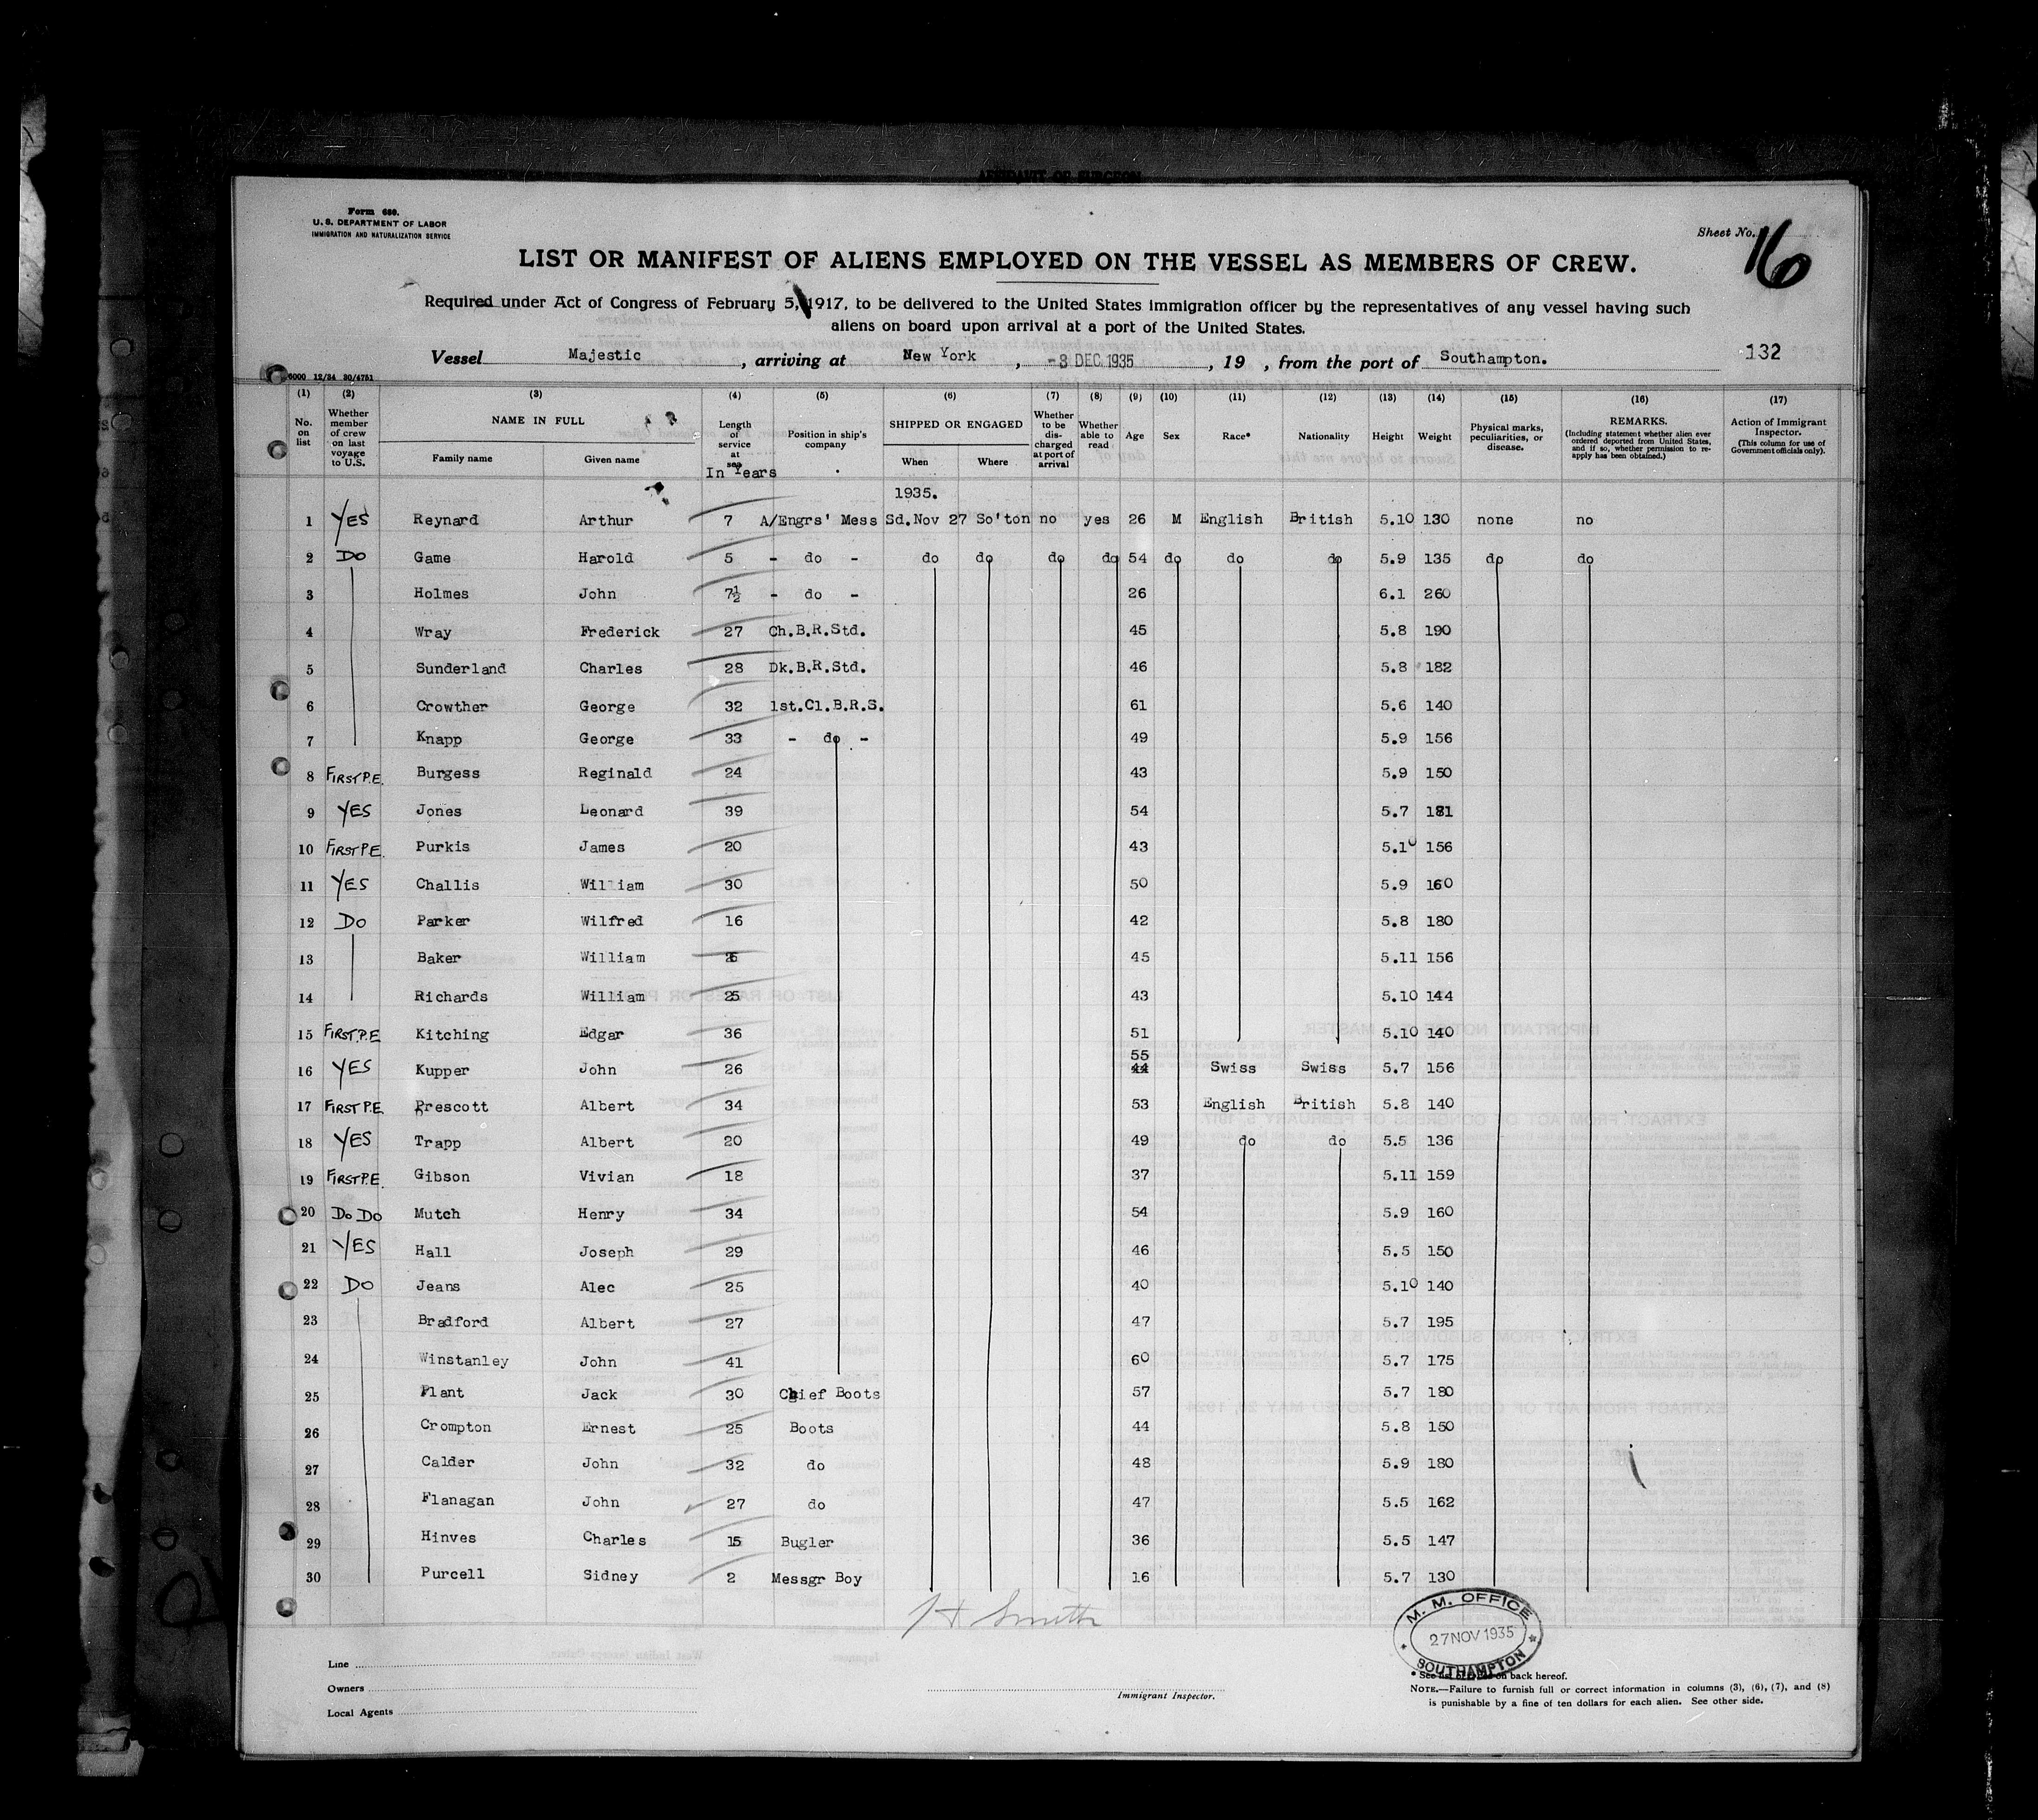 AFFIDAVIT OF SURGEON
Form 680.
U. S. DEPARTMENT OF LABOR
IMMIGRATION AND NATURALIZATION SERVICE
Sheet No. 16
LIST OR MANIFEST OF ALIENS EMPLOYED ON THE VESSEL AS MEMBERS OF CREW.
Required under Act of Congress of February 5, 1917, to be delivered to the United States immigration officer by the representatives of any vessel having such
aliens on board upon arrival at a port of the United States.
Vessel Majestic, arriving at New York, -3 DEC 1935, 19 , from the port of Southampton. 132
6000 12/34 30/4751
(1) (2) (3) (4) (5) (6) (7) (8) (9) (10) (11) (12) (13) (14) (15) (16) (17)
No. on list
Whether member of crew on last voyage to U.S.
NAME IN FULL
Family name Given name
Length of service at sea
In Years
Position in ship's company
SHIPPED OR ENGAGED
When Where
Whether to be discharged at port of arrival
Whether able to read
Age
Sex
Race*
Nationality
Height
Weight
Physical marks, peculiarities, or disease.
REMARKS.
(Including statement whether alien ever ordered deported from United States, and if so, whether permission to re-apply has been obtained.)
Action of Immigrant Inspector.
(This column for use of Government officials only).
1935.
1 YES Reynard Arthur 7 A/Engrs' Mess Sd.Nov 27 So'ton no yes 26 M English British 5.10 130 none no
2 DO Game Harold 5 - do - do do do do 54 do do do 5.9 135 do do
3 Holmes John 7½ - do - 26 6.1 260
4 Wray Frederick 27 Ch.B.R.Std. 45 5.8 190
5 Sunderland Charles 28 Dk.B.R.Std. 46 5.8 182
6 Crowther George 32 1st.Cl.B.R.S. 61 5.6 140
7 Knapp George 33 - do - 49 5.9 156
8 FIRST P.E. Burgess Reginald 24 43 5.9 150
9 YES Jones Leonard 39 54 5.7 181
10 FIRST P.E. Purkis James 20 43 5.10 156
11 YES Challis William 30 50 5.9 160
12 DO Parker Wilfred 16 42 5.8 180
13 Baker William 45 5.11 156
14 Richards William 25 43 5.10 144
15 FIRST.P.E Kitching Edgar 36 51 5.10 140
16 YES Kupper John 26 55 44 Swiss Swiss 5.7 156
17 FIRST P.E. Prescott Albert 34 53 English British 5.8 140
18 YES Trapp Albert 20 49 do do 5.5 136
19 FIRST P.E. Gibson Vivian 18 37 5.11 159
20 DO DO Mutch Henry 34 54 5.9 160
21 YES Hall Joseph 29 46 5.5 150
22 DO Jeans Alec 25 40 5.10 140
23 Bradford Albert 27 47 5.7 195
24 Winstanley John 41 60 5.7 175
25 Plant Jack 30 Chief Boots 57 5.7 180
26 Crompton Ernest 25 Boots 44 5.8 150
27 Calder John 32 do 48 5.9 180
28 Flanagan John 27 do 47 5.5 162
29 Hinves Charles 15 Bugler 36 5.5 147
30 Purcell Sidney 2 Messgr Boy 16 5.7 130
H Smith
M. M. OFFICE
27 NOV 1935
SOUTHAMPTON
Line
Owners
Local Agents
Immigrant Inspector.
* See list of races on back hereof.
NOTE.—Failure to furnish full or correct information in columns (3), (6), (7), and (8)
is punishable by a fine of ten dollars for each alien. See other side.